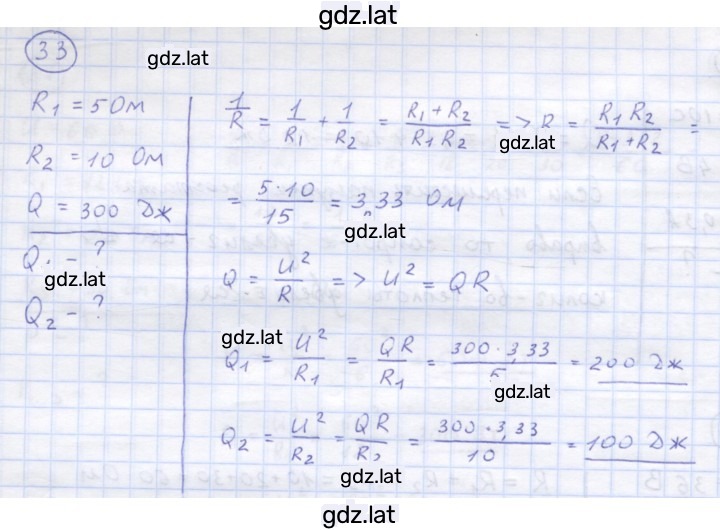 gdz.lat
33
gdz.lat
R₁ = 5 Ом
R₂ = 10 Ом
Q = 300 Дж
Q₁ - ?
gdz.lat
Q₂ - ?
1/R = 1/R₁ + 1/R₂ = (R₁ + R₂)/(R₁ R₂) => R = (R₁ R₂)/(R₁ + R₂) =
gdz.lat
= (5·10)/15 = 3,33 Ом
gdz.lat
Q = U²/R => U² = QR
gdz.lat
Q₁ = U²/R₁ = QR/R₁ = (300·3,33)/5 = 200 Дж
gdz.lat
Q₂ = U²/R₂ = QR/R₂ = (300·3,33)/10 = 100 Дж
gdz.lat
gdz.lat